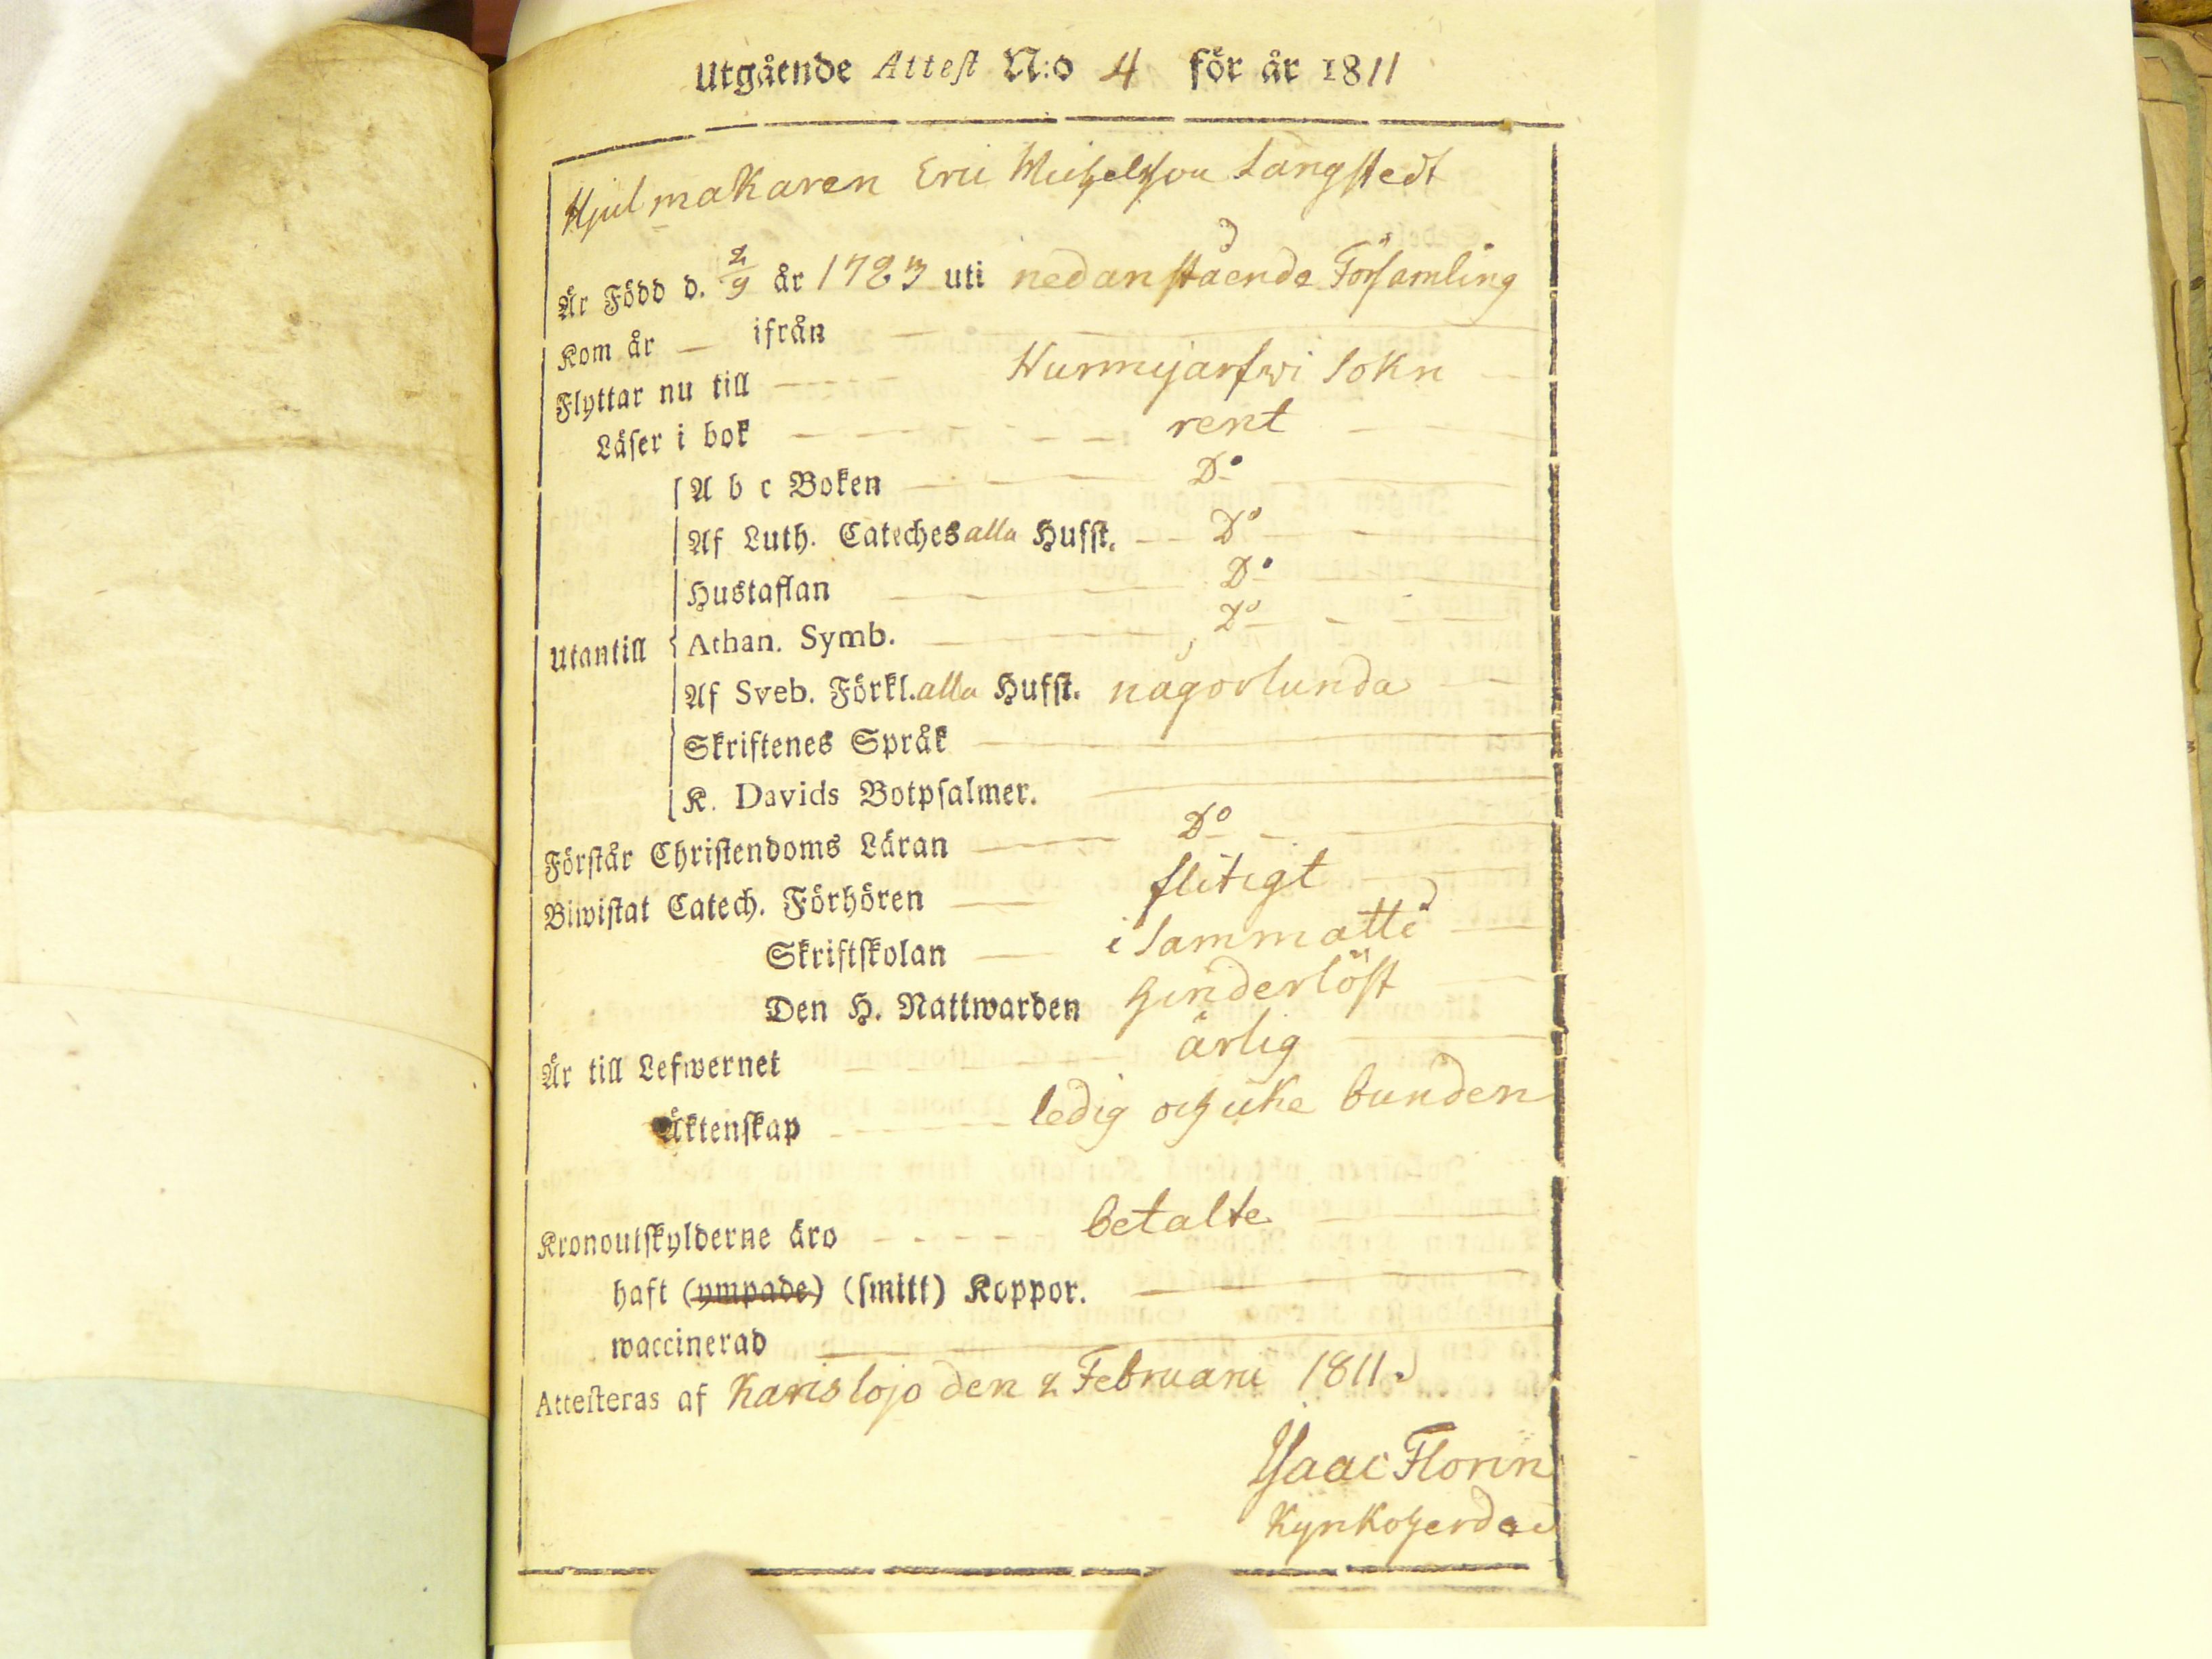 Utgående Attest N:o 4 för år 1811
Hjulmakaren Eric Michelsson Långstedt
Är Född d. 2/9 år 1783 uti nedanstående Församling
Kom år — ifrån —
Flyttar nu till — Nurmijärfwi Sokn —
Läser i bok — rent —
A b c Boken — Do —
Af Luth. Cateches alla Hufst. — Do —
Hustaflan — Do —
Utantill Athan. Symb. — Do —
Af Sveb. Förkl. alla Hufst. någorlunda —
Skriftenes Språk —
K. Davids Botpsalmer. —
Förstår Christendoms Läran — Do —
Biwistat Catech. Förhören — flitigt —
Skriftskolan — i sammåtto —
Den H. Nattwarden hinderlöst —
Är till Lefwernet — ärlig —
Äktenskap — ledig och icke bunden
Kronoutskylderne äro — betalte —
haft (ympade) (smitt) Koppor. —
waccinerad —
Attesteras af Karislojo den 2 Februarii 1811.
Isaac Florin
Kyrkoherde